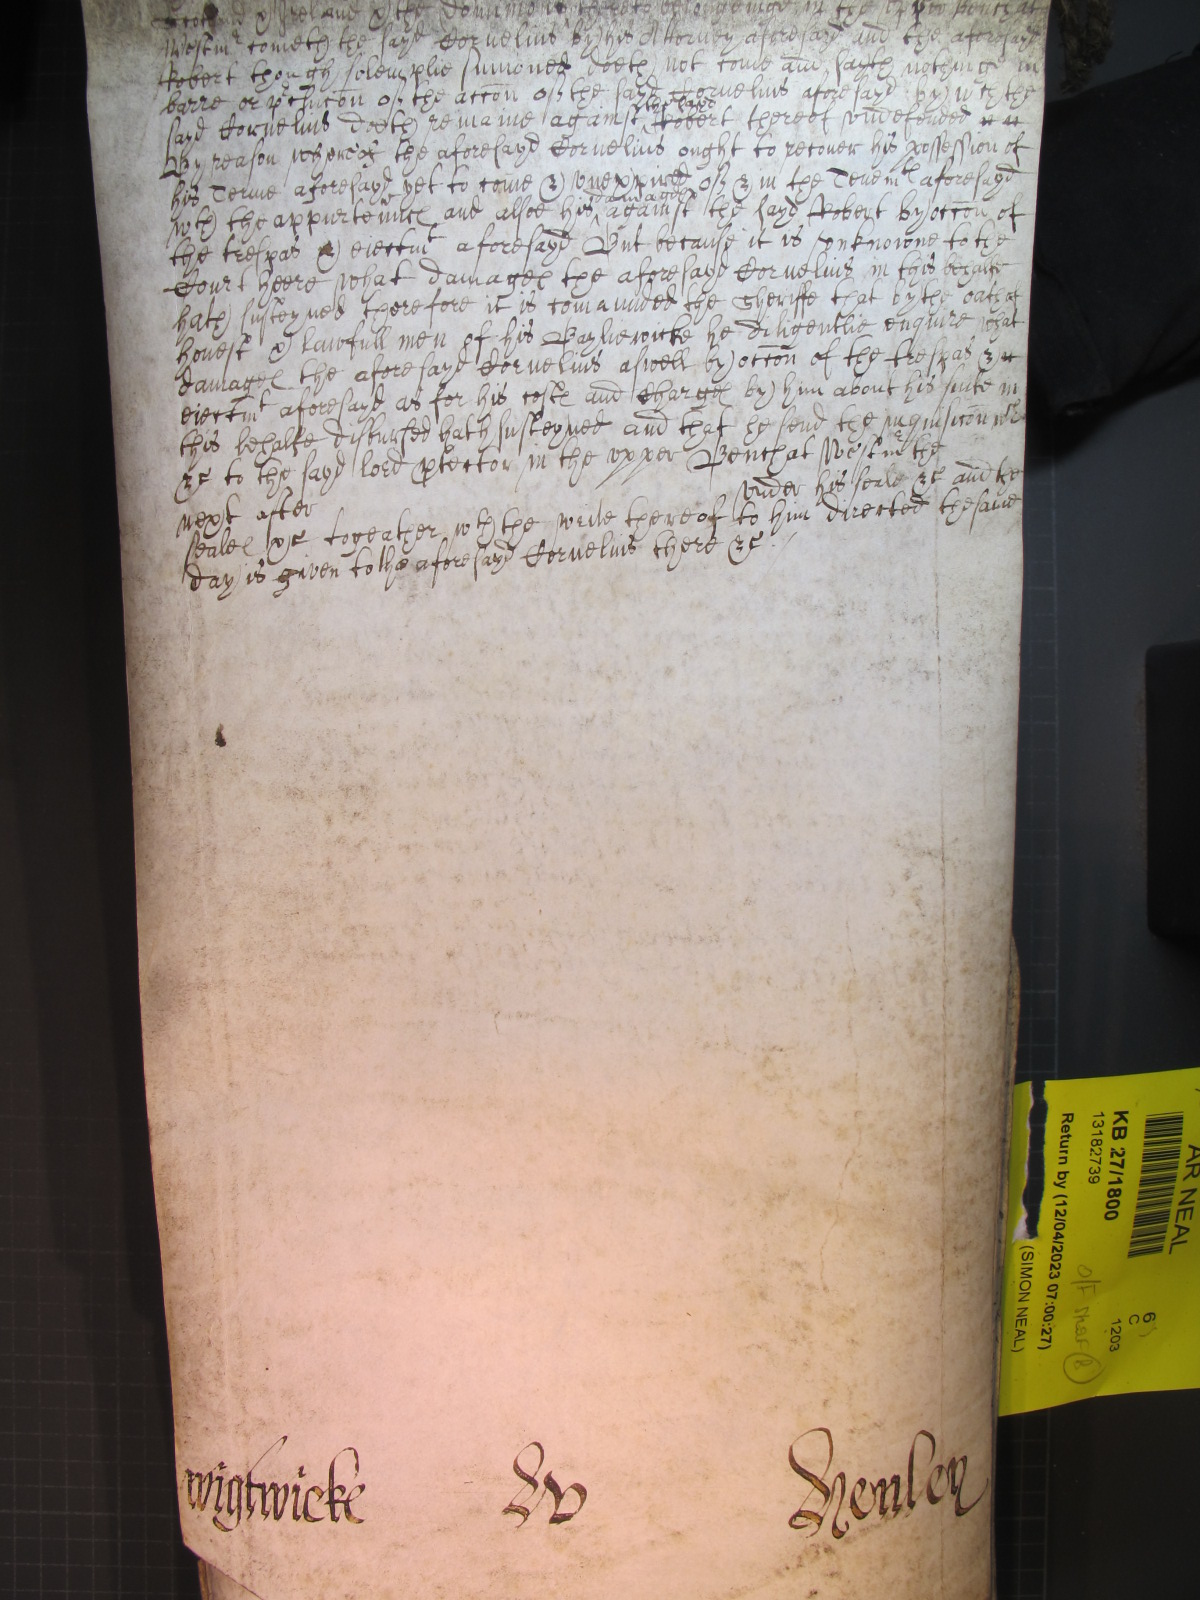 Scotland & Ireland & the dominions thereto belonginge in the upper Bench at
Westmr cometh the sayd Cornelius by his Attorney aforesayd and the aforesayd
Robert though solemplie sumoned doeth not come and sayth nothing in
barre or p'clucōn off the accōn off the sayd Cornelius aforesayd by wch the
sayd Cornelius doeth remaine against the sayd Robert thereof vndefended
By reason whereof the aforesayd Cornelius ought to recover his possession of
his Terme aforesayd yet to come & vnexpired off & in the Tenemts aforesayd
wth the appurtenncs and alsoe his damages against the sayd Robert by occōn of
the trespas & eiectmt aforesayd But because it is vnknowne to the
Court heere what damages the aforesayd Cornelius in this behalfe
hath susteyned therefore it is comaunded the Sheriffe that by the oath of
honest & lawfull men of his Bayliewicke he diligentlie enquire what
damages the aforesayd Cornelius aswell by occōn of the trespas &
eiectmt aforesayd as for his costs and Charges by him about his suite in
this behalfe disbursed hath susteyned and that he send the inquisicōn wch
&c to the sayd lord p'tector in the vpper Bench at Westmr the
next after vnder his seale &c and the
seales &c togeather wth the write thereof to him directed the same
day is given to the aforesayd Cornelius there &c
wigtwicke
W
Henley
AR NEAL
KB 27/1800
13182739
Return by (12/04/2023 07:00:27)
(SIMON NEAL)
6
C
1203